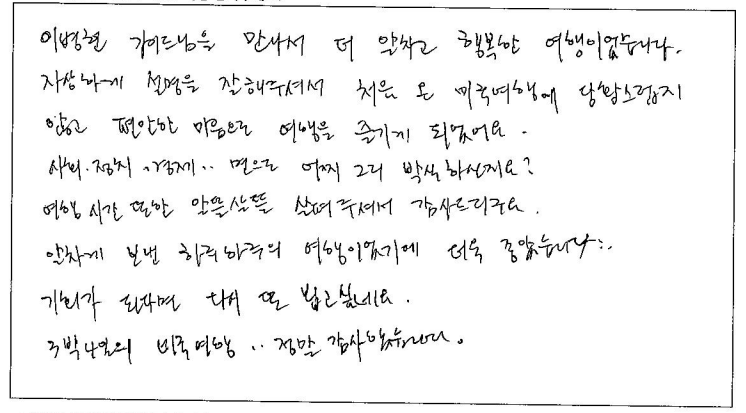 이병현 가이드님을 만나서 더 알차고 행복한 여행이었습니다.
자상하게 설명을 잘해주셔서 처음 온 미국여행에 당황스럽지
않고 편안한 마음으로 여행을 즐기게 되었어요.
사회.정치.경제.. 면으로 어찌 그리 박식하신지요?
여행 시간 또한 알뜰살뜰 살펴주셔서 감사드리구요.
알차게 보낸 하루하루의 여행이었기에 더욱 좋았습니다:.
기회가 된다면 다시 또 뵙고싶네요.
3박4일의 미국여행 .. 정말 감사했습니다.